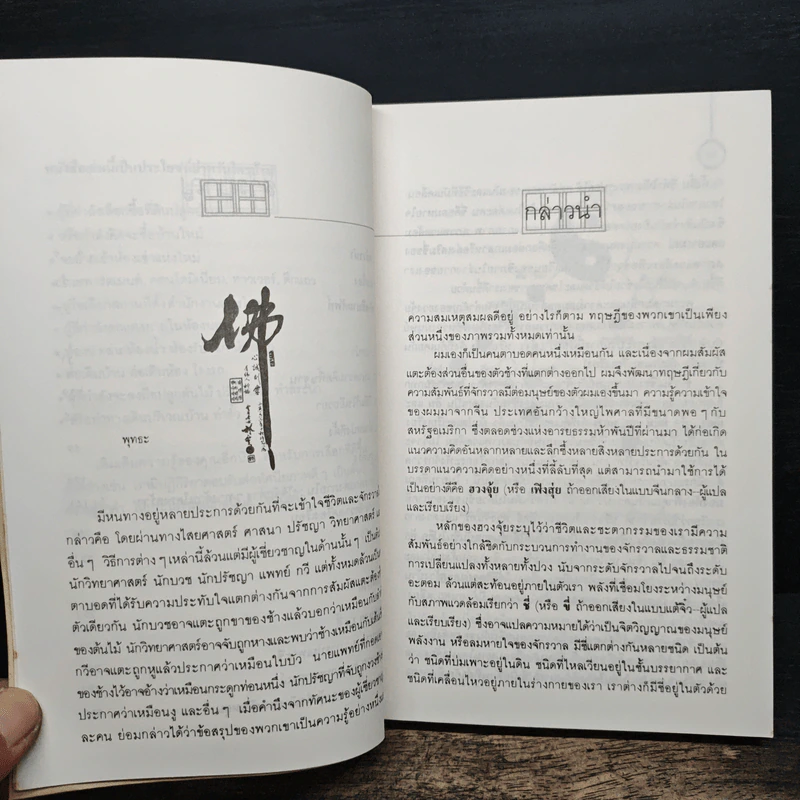 佛
พุทธะ
มีหนทางอยู่หลายประการด้วยกันที่จะเข้าใจชีวิตและจักรวาล
กล่าวคือ โดยผ่านทางไสยศาสตร์ ศาสนา ปรัชญา วิทยาศาสตร์ แ
อื่น ๆ วิธีการต่าง ๆ เหล่านี้ล้วนแต่มีผู้เชี่ยวชาญในด้านนั้น ๆ เป็นต้น
นักวิทยาศาสตร์ นักบวช นักปรัชญา แพทย์ กวี แต่ทั้งหมดล้วนเป็น
ตาบอดที่ได้รับความประทับใจแตกต่างกันจากการสัมผัสแตะต้อง
ตัวเดียวกัน นักบวชอาจแตะถูกขาของช้างแล้วบอกว่าเหมือนกับ
ของต้นไม้ นักวิทยาศาสตร์อาจจับถูกหางและพบว่าช้างเหมือนกับ
กวีอาจแตะถูกหูแล้วประกาศว่าเหมือนใบบัว นายแพทย์ที่
ของช้างไว้อาจอ้างว่าเหมือนกระดูกท่อนหนึ่ง นักปรัชญาที่จับถูกงวง
ประกาศว่าเหมือนงู และอื่น ๆ เมื่อคำนึงจากทัศนะของผู้เชี่ยวชาญ
ละคน ย่อมกล่าวได้ว่าข้อสรุปของพวกเขาเป็นความรู้อย่าง
กล่าวนำ
ความสมเหตุสมผลดีอยู่ อย่างไรก็ตาม ทฤษฎีของพวกเขาเป็นเพียง
ส่วนหนึ่งของภาพรวมทั้งหมดเท่านั้น
ผมเองก็เป็นคนตาบอดคนหนึ่งเหมือนกัน และเนื่องจากผมสัมผัส
แตะต้องส่วนอื่นของตัวช้างที่แตกต่างออกไป ผมจึงพัฒนาทฤษฎีเกี่ยวกับ
ความสัมพันธ์ที่จักรวาลมีต่อมนุษย์ของตัวผมเองขึ้นมา ความรู้ความเข้าใจ
ของผมมาจากจีน ประเทศอันกว้างใหญ่ไพศาลที่มีขนาดพอ ๆ กับ
สหรัฐอเมริกา ซึ่งตลอดช่วงแห่งอารยธรรมห้าพันปีที่ผ่านมา ได้ก่อเกิด
แนวความคิดอันหลากหลายและลึกซึ้งหลายสิ่งหลายประการด้วยกัน ใน
บรรดาแนวความคิดอย่างหนึ่งที่ลี้ลับที่สุด แต่สามารถนำมาใช้การได้
เป็นอย่างดีคือ ฮวงจุ้ย (หรือ เฟิงสุ่ย ถ้าออกเสียงในแบบจีนกลาง–ผู้แปล
และเรียบเรียง)
หลักของฮวงจุ้ยระบุไว้ว่าชีวิตและชะตากรรมของเรามีความ
สัมพันธ์อย่างใกล้ชิดกับกระบวนการทำงานของจักรวาลและธรรมชาติ
การเปลี่ยนแปลงทั้งหลายทั้งปวง นับจากระดับจักรวาลไปจนถึงระดับ
อะตอม ล้วนแต่สะท้อนอยู่ภายในตัวเรา พลังที่เชื่อมโยงระหว่างมนุษย์
กับสภาพแวดล้อมเรียกว่า ชี่ (หรือ ขี่ ถ้าออกเสียงในแบบแต้จิ๋ว–ผู้แปล
และเรียบเรียง) ซึ่งอาจแปลความหมายได้ว่าเป็นจิตวิญญาณของมนุษย์
พลังงาน หรือลมหายใจของจักรวาล มีชี่แตกต่างกันหลายชนิด เป็นต้น
ว่า ชนิดที่บ่มเพาะอยู่ในดิน ชนิดที่ไหลเวียนอยู่ในชั้นบรรยากาศ และ
ชนิดที่เคลื่อนไหวอยู่ภายในร่างกายของเรา เราต่างก็มีชี่อยู่ในตัวด้วย